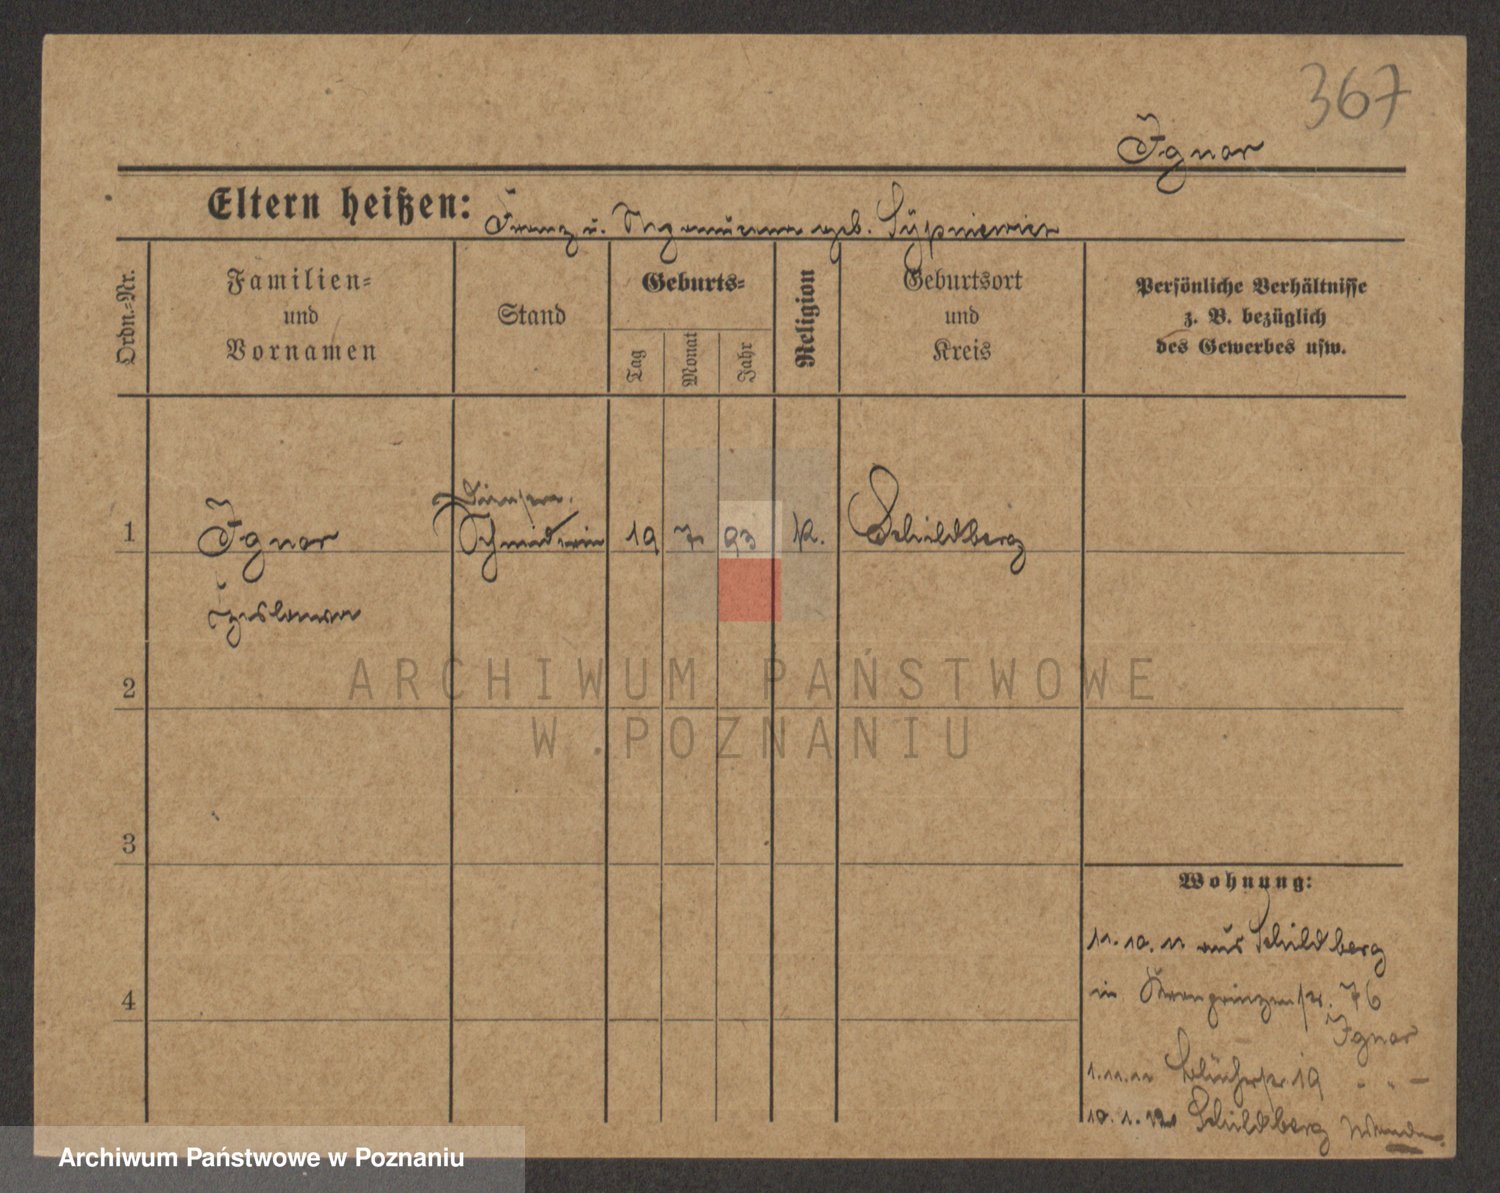 367
Ignor
Eltern heißen: Franz u. geb.
Ordn.-Nr.
Familien-
und
Vornamen
Stand
Geburts-
Tag
Monat
Jahr
Religion
Geburtsort
und
Kreis
Persönliche Verhältnisse
z. B. bezüglich
des Gewerbes usw.
1 Ignor 19 7 93 k. Schildberg
Czeslawa
2
3
4
Wohnung:
11.10.11 aus Schildberg
in Kronprinzenstr. 76
Ignor
1.11.11 Blücherstr. 19 " " –
10.1.12 Schildberg Wenden
ARCHIWUM PAŃSTWOWE
W POZNANIU
Archiwum Państwowe w Poznaniu